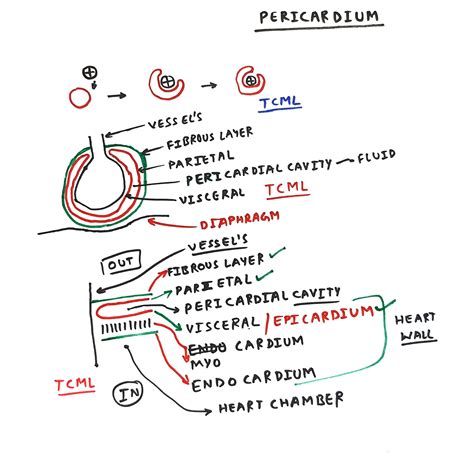 PERICARDIUM
TCML
VESSEL'S
FIBROUS LAYER
PARIETAL
PERICARDIAL CAVITY - FLUID
VISCERAL TCML
DIAPHRAGM
OUT
VESSEL'S
FIBROUS LAYER ✓
PARIETAL ✓
PERICARDIAL CAVITY
VISCERAL / EPICARDIUM ✓
HEART WALL
ENDO CARDIUM
MYO
ENDO CARDIUM
TCML
IN
HEART CHAMBER